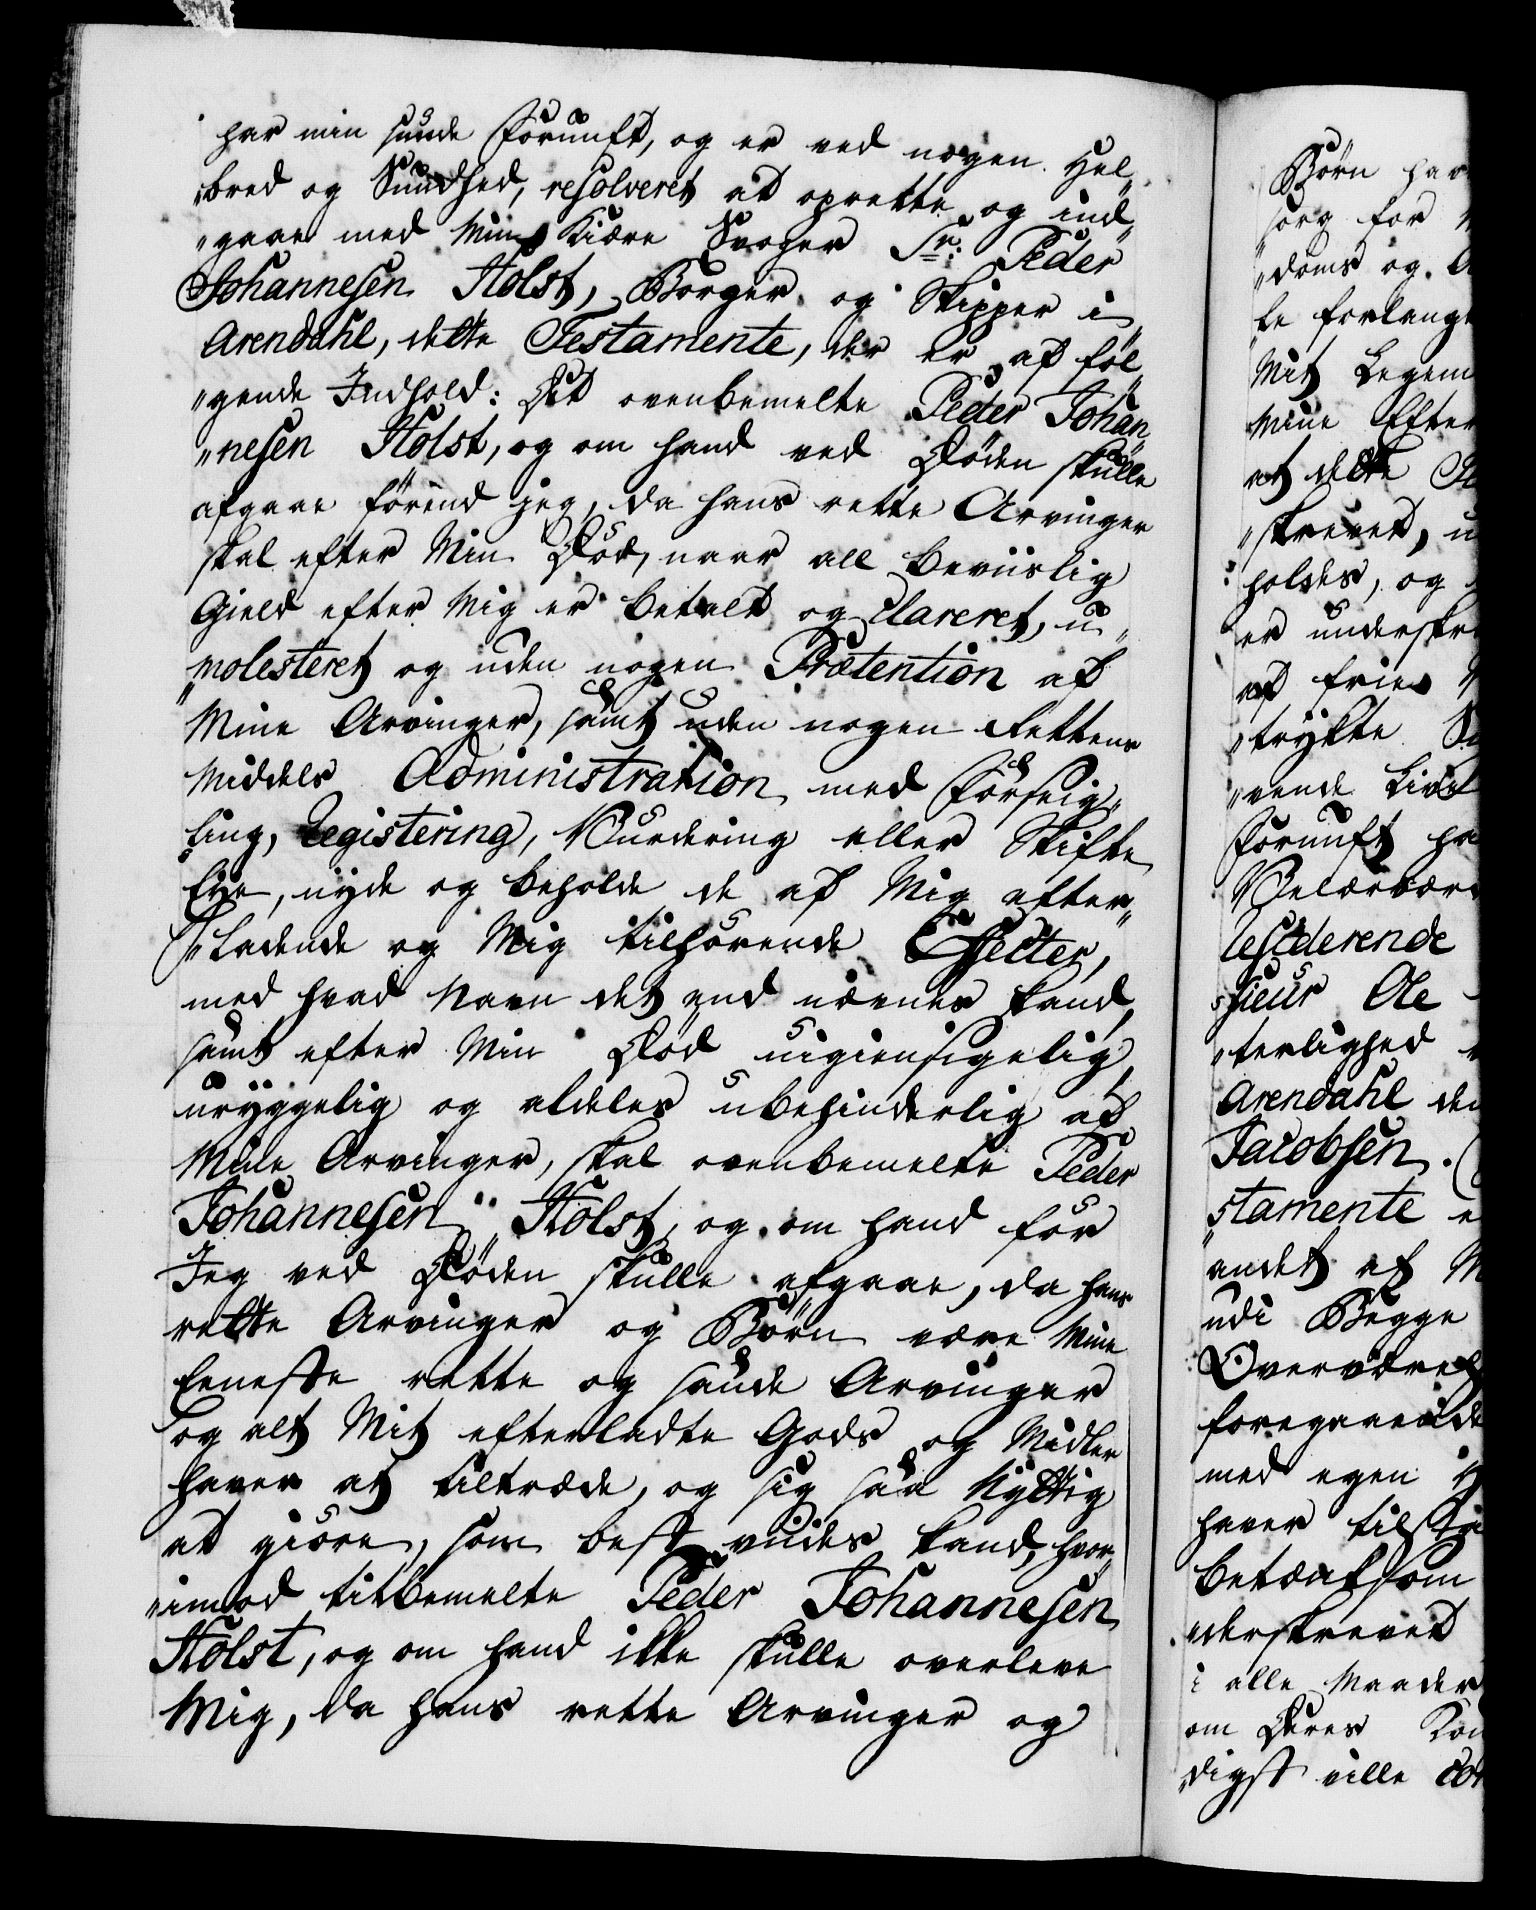 har min sunde Fornuft, og er ved nogen Hel„
„bred og Sundhed, resolveret at oprette og ind„
„gaae med Min Kiære Svoger Sr: Peder
Johannesen Holst, Borger og Skipper i
Arendahl, dette Testamente, der er af föl„
„gende Indhold: At ovenbemelte Peder Johan„
„nesen Holst, og om hand ved Döden skulle
afgaae förend jeg, da hans rette Arvinger
skal efter Min Död, naar all beviislig
Gield efter Mig er betalt og clareret, u„
„molesteret og uden nogen Prætention af
Mine Arvinger, samt uden nogen Rettens
Middels Administration med Forseig„
„ling, Registering, Vurdering eller Skifte
Eye, nyde og beholde de af Mig efter„
„ladende og Mig tilhörende Effecter,
med hvad Navn det end nævnes kand,
samt efter Min Död uigiensigelig
uryggelig og aldeles ubehinderlig af
Mine Arvinger, skal ovenbemelte Peder
Johannesen Holst, og om hand för
Jeg ved Döden skulle afgaae, da hans
rette Arvinger og Börn være Mine
Eeneste rette og sande Arvinger
og alt Mit efterladte Gods og Midler
haver at tiltræde, og sig saa Nyttig
at giöre, som best vides kand, hvor„
„imod titbemelte Peder Johannesen
Holst, og om hand ikke skulle overleve
Mig, da hans rette Arvinger og
Börn har
sorg for
„doms og
te forlange
Mit Legem
Mine Efter
at dette
„skrevet, u
holdes, og
er underskre
af frie
„trykte
„vende Liv
Fornuft ha
Velærbær
residerende
sieur Ole
„terlighed
Arendahl den
Jacobsen.
„stamente
andet af
udi Begge
Overværel
foregaaende
med egen
haver tilst
betænksom
„derskrevet
i alle Maader
om Deres Kon
„digst ville